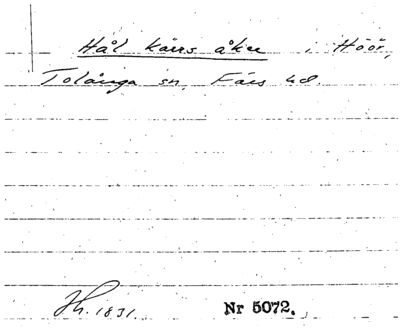 Hål kärrs åker i Höör,
Tolånga sn, Färs hd.
Jh. 1831. Nr 5072.